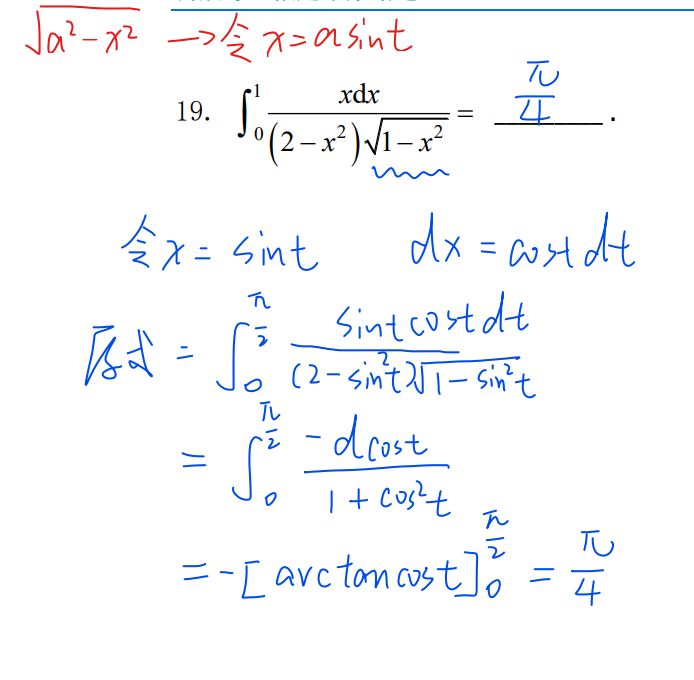 √(a²-x²) →令 x=asint
19. ∫₀¹ xdx / ((2-x²)√(1-x²)) = π/4 .
令x=sint dx=costdt
原式 = ∫₀^(π/2) sintcostdt / ((2-sin²t)√(1-sin²t))
= ∫₀^(π/2) -dcost / (1+cos²t)
=-[arctancost]₀^(π/2) = π/4